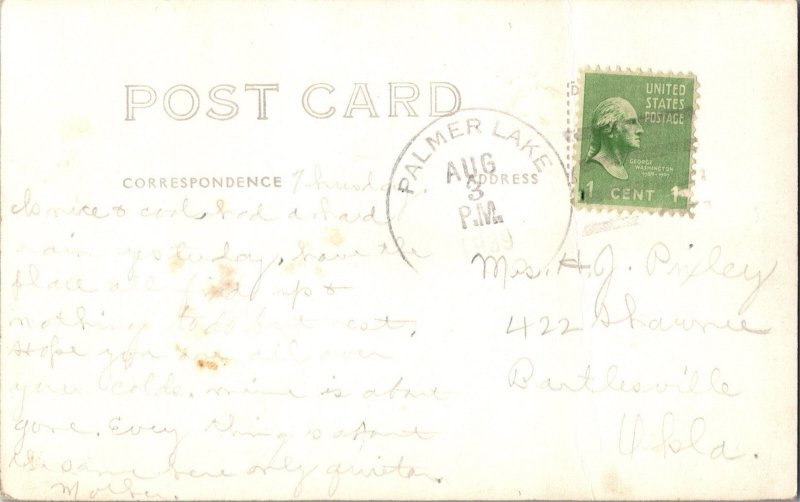 POST CARD
PALMER LAKE
AUG
3
P.M.
1939
UNITED
STATES
POSTAGE
GEORGE
WASHINGTON
1789-1797
1 CENT 1
CORRESPONDENCE
ADDRESS
Thursday.
Is nice & cool, had a hard
rain yesterday, have the
place all fixed up &
nothing to do but rest.
Hope you are all over
your colds. mine is about
gone. Every thing is about
the same here only quieter.
Mother.
Mrs. H. J. Pixley
422 Shawnee
Bartlesville
Okla.